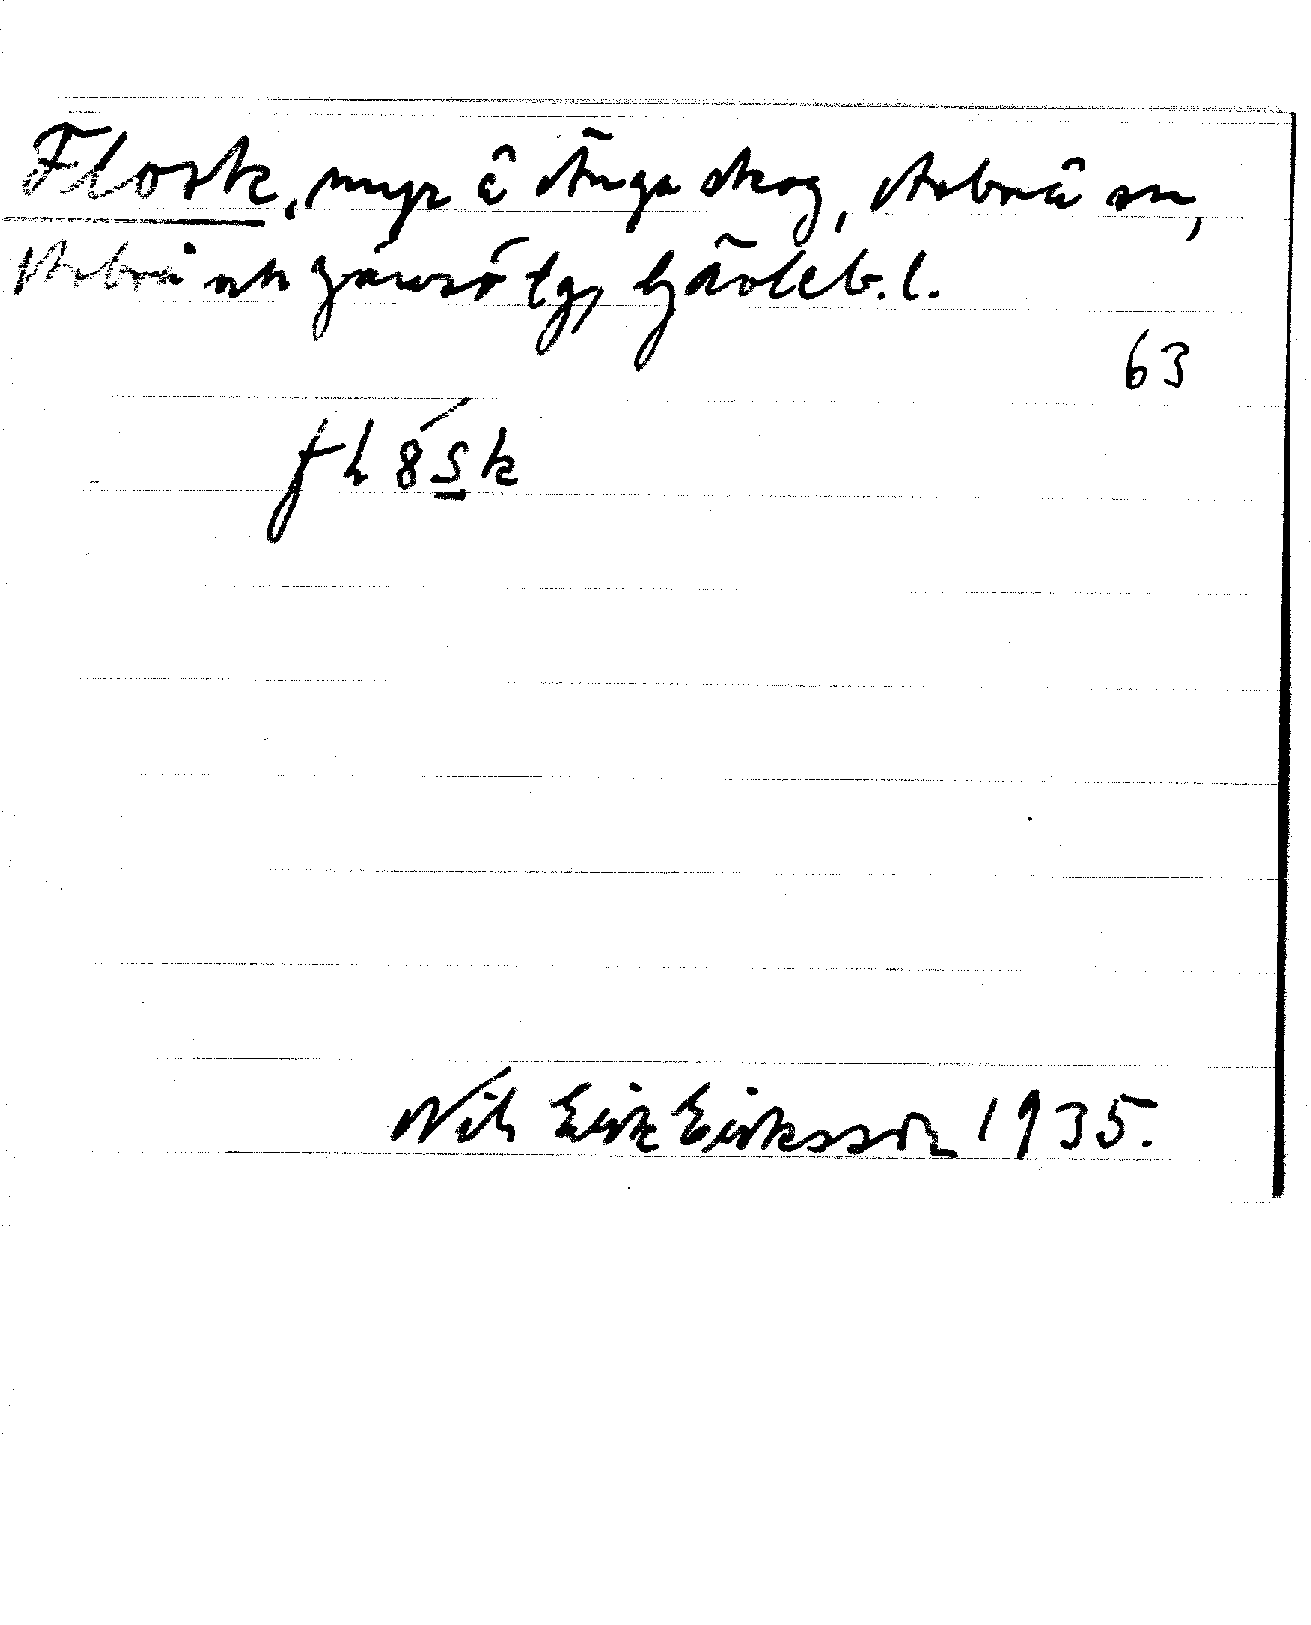 Flosk, myr å Änga skog, Arbrå sn,
Arbrå och Järvsö tg, Gävleb. l.
63
fl8sk
Nils Erik Eriksson 1935.